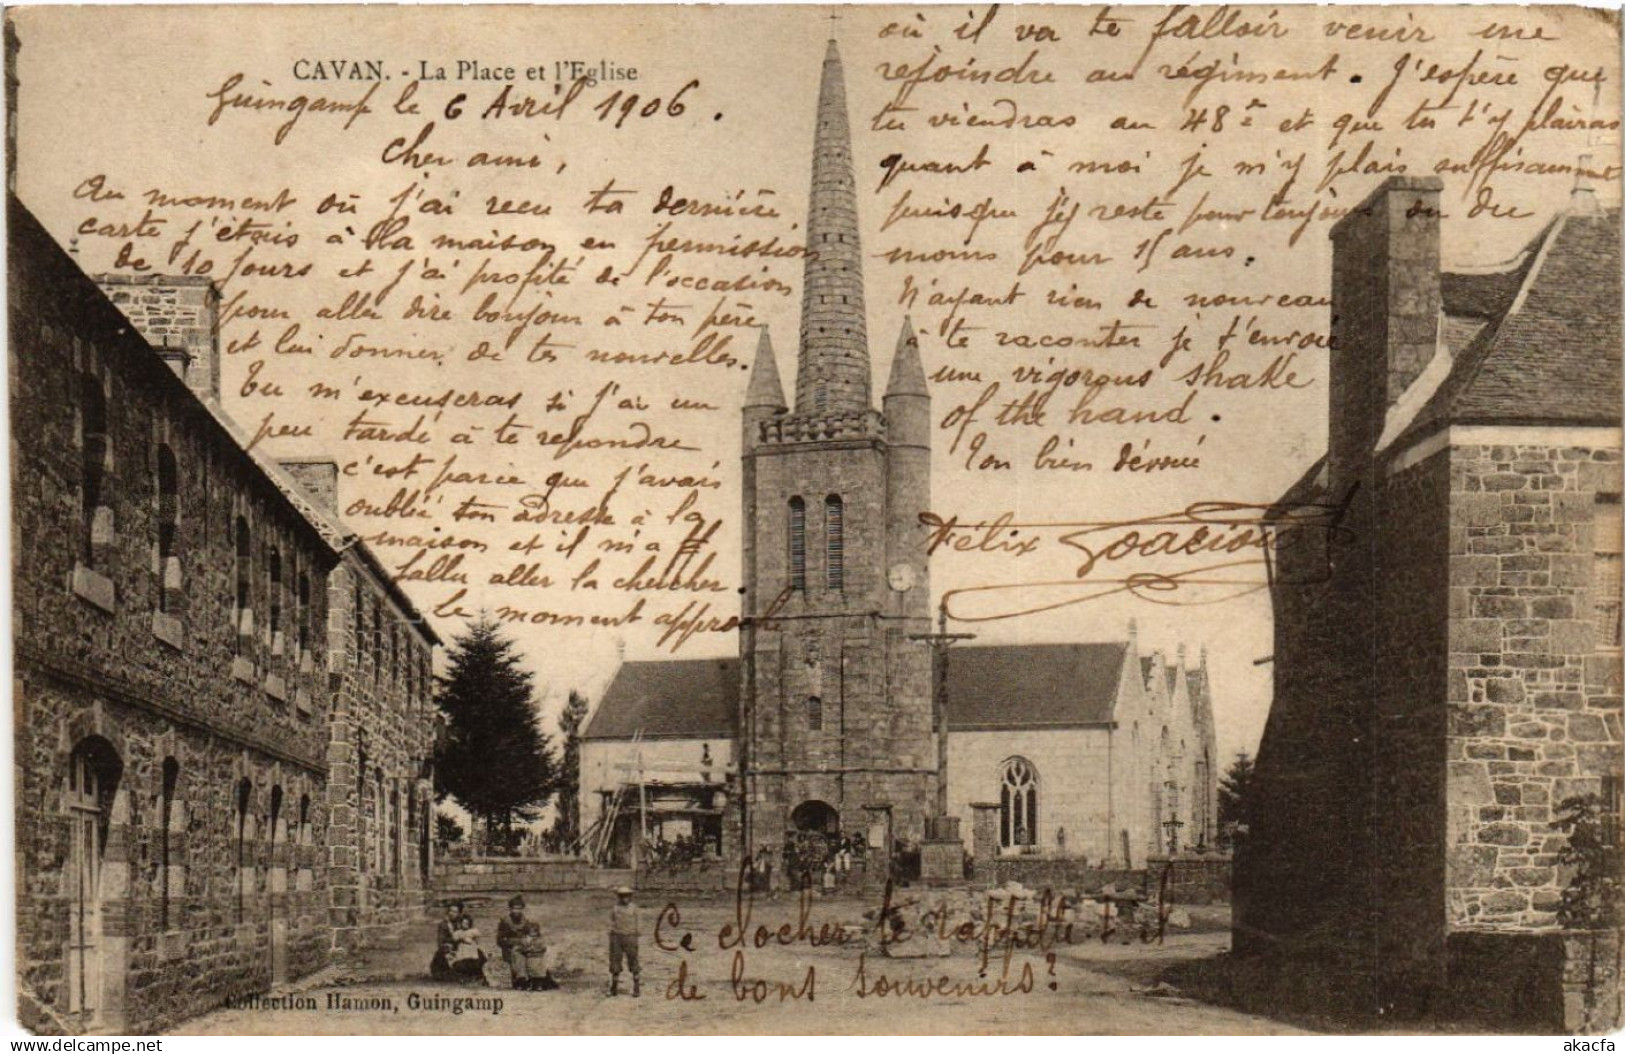 CAVAN. - La Place et l'Eglise
Guingamp le 6 Avril 1906.
Cher ami,
Au moment où j'ai reçu ta dernière
carte j'étais à la maison en permission
de 10 jours et j'ai profité de l'occasion
pour aller dire bonjour à ton père
et lui donner de tes nouvelles.
Tu m'excuseras si j'ai un
peu tardé à te repondre
c'est parce que j'avais
oublié ton adresse à la
maison et il m'a
fallu aller la chercher.
Le moment approche
où il va te falloir venir me
rejoindre au régiment. J'espère que
tu viendras au 48e et que tu t'y plairas
quant à moi je m'y plais suffisamment
puisque j'y reste pour toujours ou du
moins pour 15 ans.
N'ayant rien de nouveau
à te raconter je t'envoie
une vigorous shake
of the hand.
Ton bien dévoué
Félix
Ce clocher te rappelle-t-il
de bons souvenirs?
Collection Hamon, Guingamp
akacfa